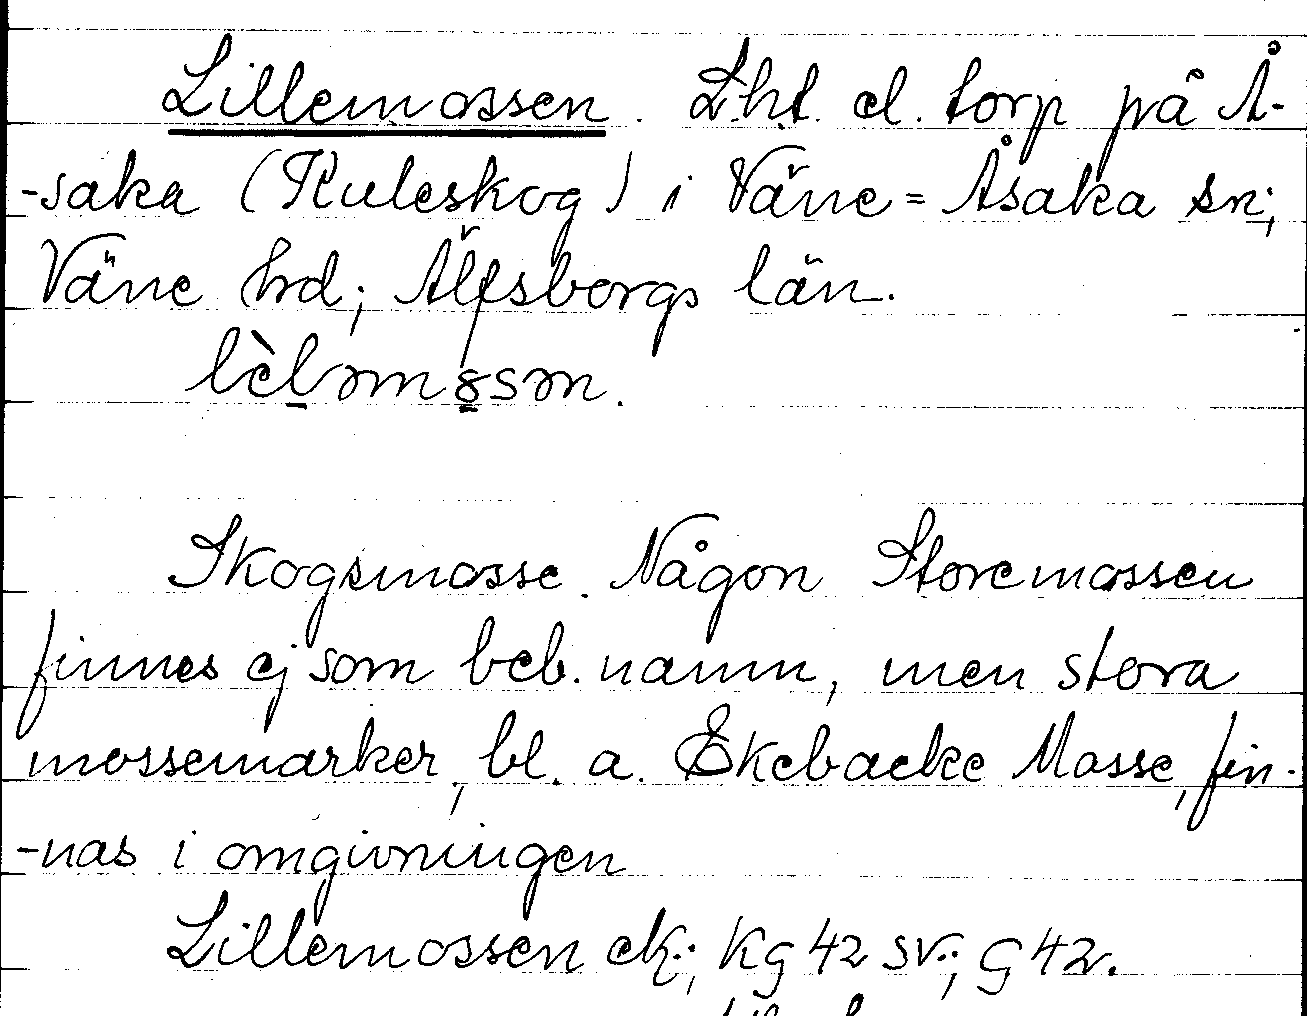 Lillemossen. Lht. el. torp på Å-
-saka (Kuleskog) i Väne=Åsaka sn;
Väne hrd; Älfsborgs län.
Skogsmosse. Någon Storemossen
finnes ej som beb. namn, men stora
mossemarker, bl. a. Ekebacke Mosse, fin-
-nas i omgivningen
Lillemossen ek.; Kg 42 sv.; G 42.